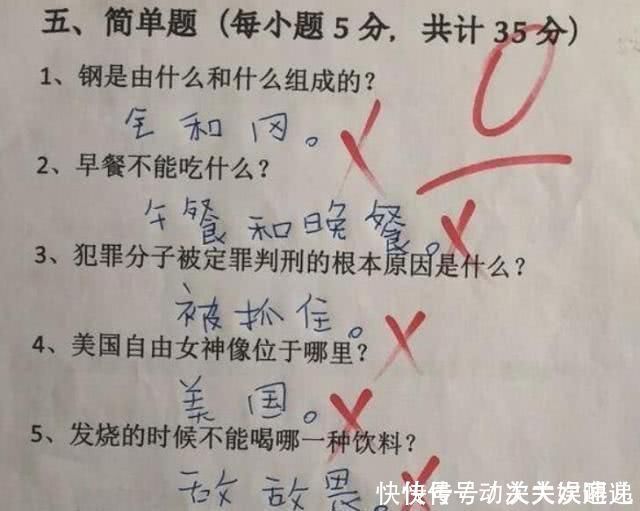 五、简单题（每小题5分，共计35分）
0
1、钢是由什么和什么组成的？
全和冈。
2、早餐不能吃什么？
午餐和晚餐。
3、犯罪分子被定罪判刑的根本原因是什么？
被抓住。
4、美国自由女神像位于哪里？
美国。
5、发烧的时候不能喝哪一种饮料？
敌敌畏。